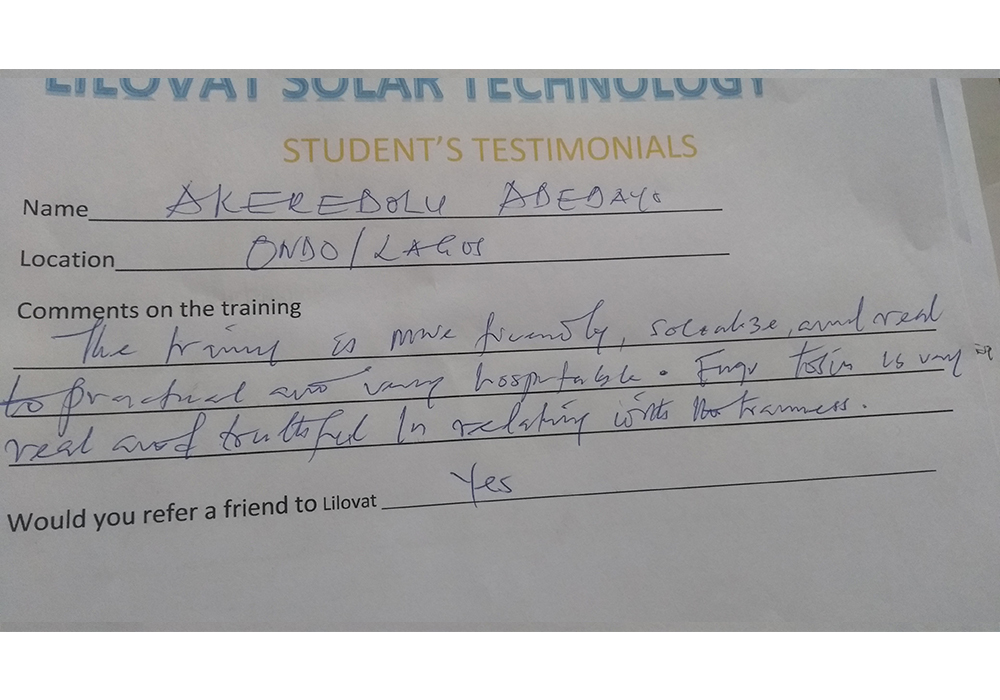 LILOVAT SOLAR TECHNOLOGY
STUDENT'S TESTIMONIALS
Name AKEREDOLU ADEDAYO
Location ONDO/LAGOS
Comments on the training
The training is more friendly, socialize, and real
to practical and very hospitable. Engr Tosin is very
real and truthful in relating with the trainness.
Would you refer a friend to Lilovat Yes